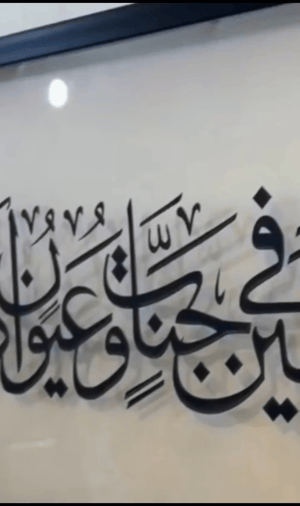 في جَنَّاتٍ وَعُيُونٍ